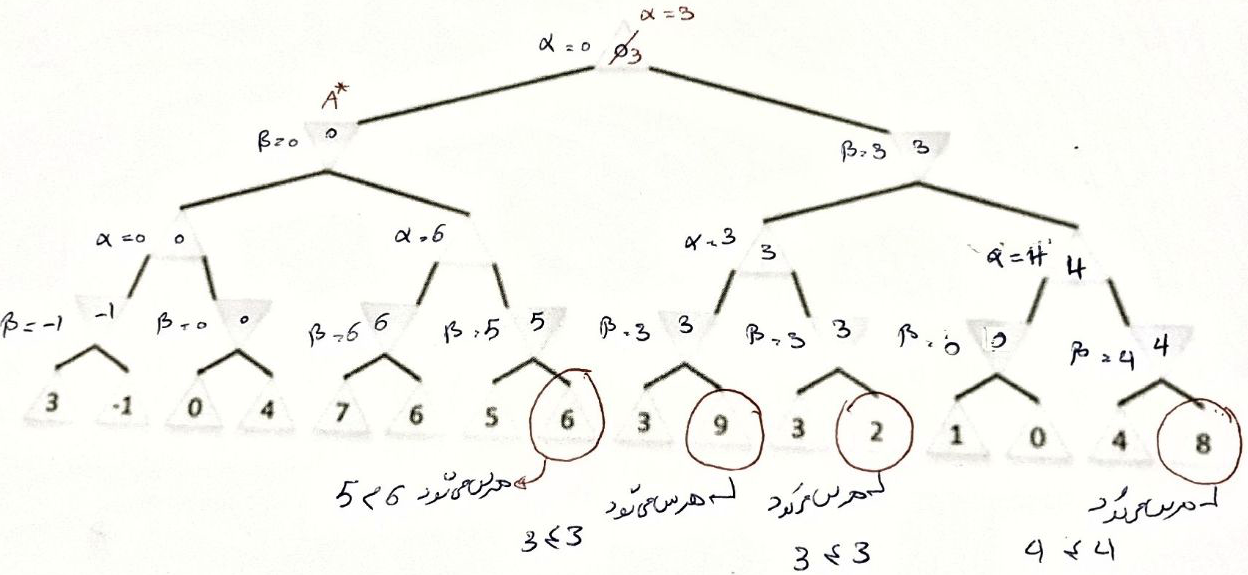 α = 3
α = 0 0 3
A*
β = 0 0
β = 3 3
α = 0 0
α = 6
α = 3 3
α = 4 4
β = -1 -1
β = 0 0
β = 6 6
β = 5 5
β = 3 3
β = 3 3
β = 0 0
β = 4 4
3 -1 0 4 7 6 5 6 3 9 3 2 1 0 4 8
5 < 6 هرس می‌شود
هرس می‌شود
3 ≮ 3
هرس می‌شود
3 ≮ 3
هرس می‌گردد
4 ≮ 4